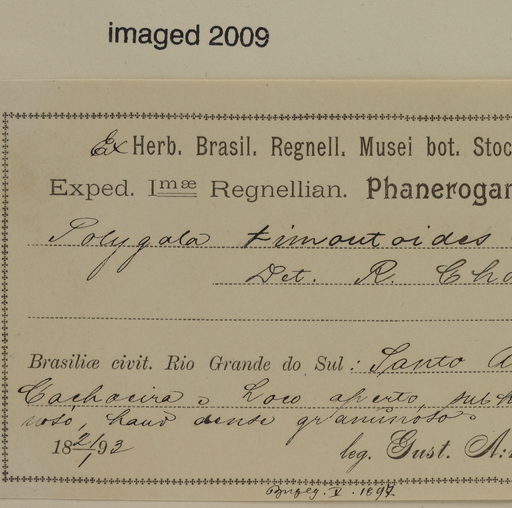 imaged 2009
Ex Herb. Brasil. Regnell. Musei bot. Stoc
Exped. Imæ Regnellian. Phanerogam
Polygala timoutoides
Det. R. Cho
Brasiliæ civit. Rio Grande do Sul: Santo A
Cachoeira, Loco aperto, sub
haud dense graminoso.
18 21/1 93 leg. Gust. A:
V. 1897.